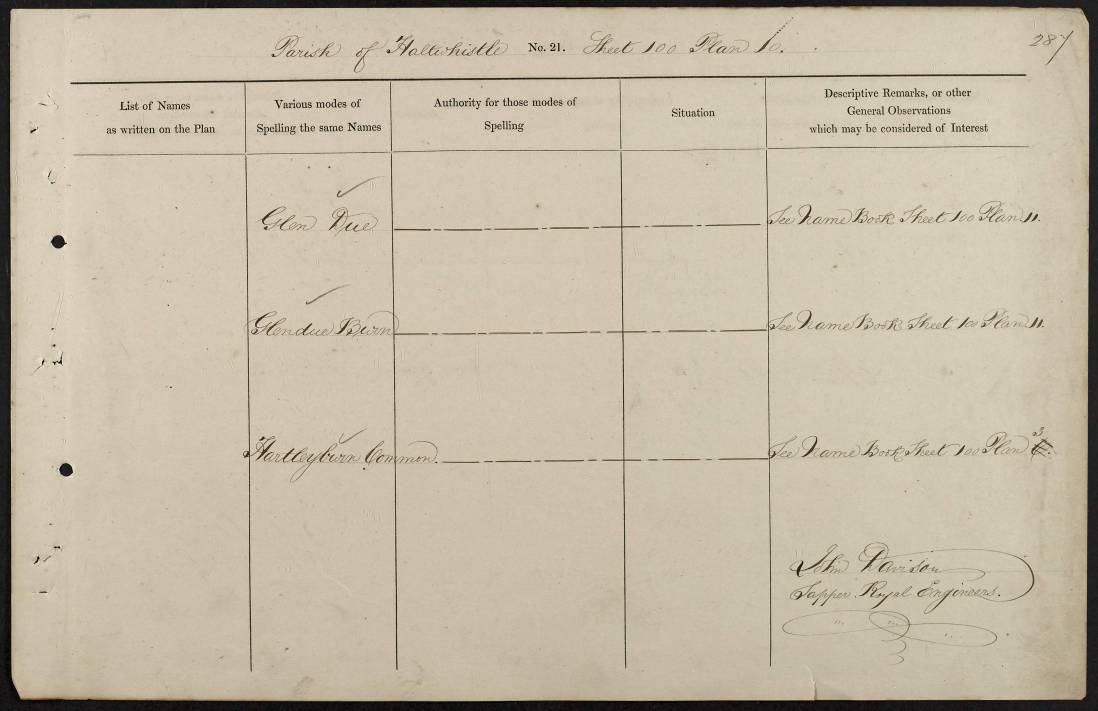 Parish of Haltwhistle No. 21. Sheet 100 Plan 10.
287
List of Names
as written on the Plan
Various modes of
Spelling the same Names
Authority for those modes of
Spelling
Situation
Descriptive Remarks, or other
General Observations
which may be considered of Interest
Glen Due
See Name Book Sheet 100 Plan 11.
Glendue Burn
See Name Book Sheet 100 Plan 11.
Hartleyburn Common
See Name Book Sheet 100 Plan 3
John Davison
Sapper Royal Engineers.